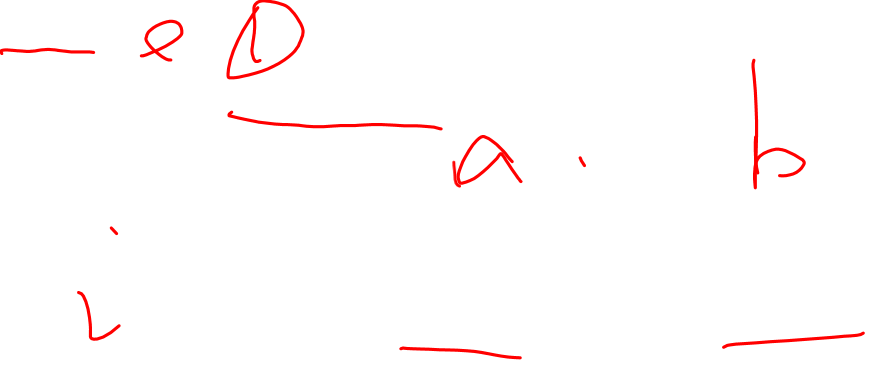 — e D
— a . b
i — —